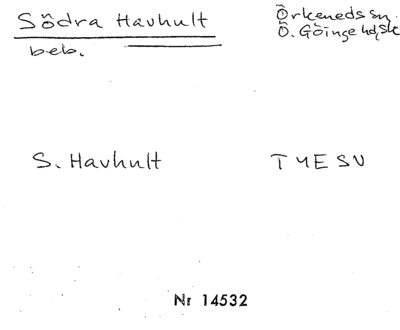 Södra Havhult
Örkeneds sn.
Ö. Göinge hd, Sk
beb.
S. Havhult
TYESV
Nr 14532